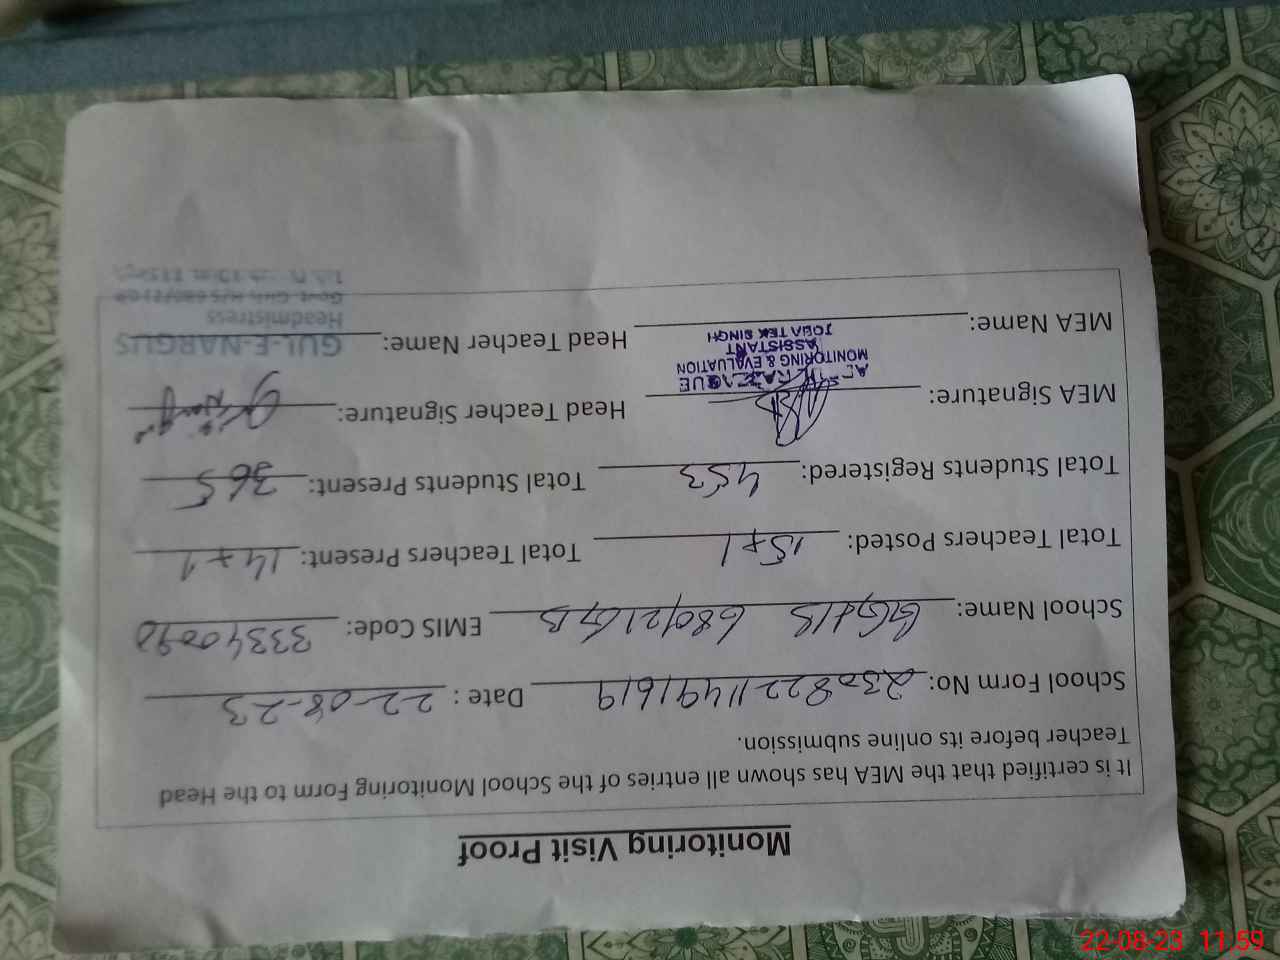 Monitoring Visit Proof
It is certified that the MEA has shown all entries of the School Monitoring Form to the Head
Teacher before its online submission.
School Form No: 23082211491619 Date : 22-08-23
School Name: GGHS 680/21GB EMIS Code: 33340090
Total Teachers Posted: 15+1 Total Teachers Present: 14+1
Total Students Registered: 453 Total Students Present: 365
MEA Signature: Head Teacher Signature:
MONITORING & EVALUATION
ASSISTANT
TOBA TEK SINGH
MEA Name: Head Teacher Name: GUL-E-NARGUS
Headmistress
22-08-23 11:59